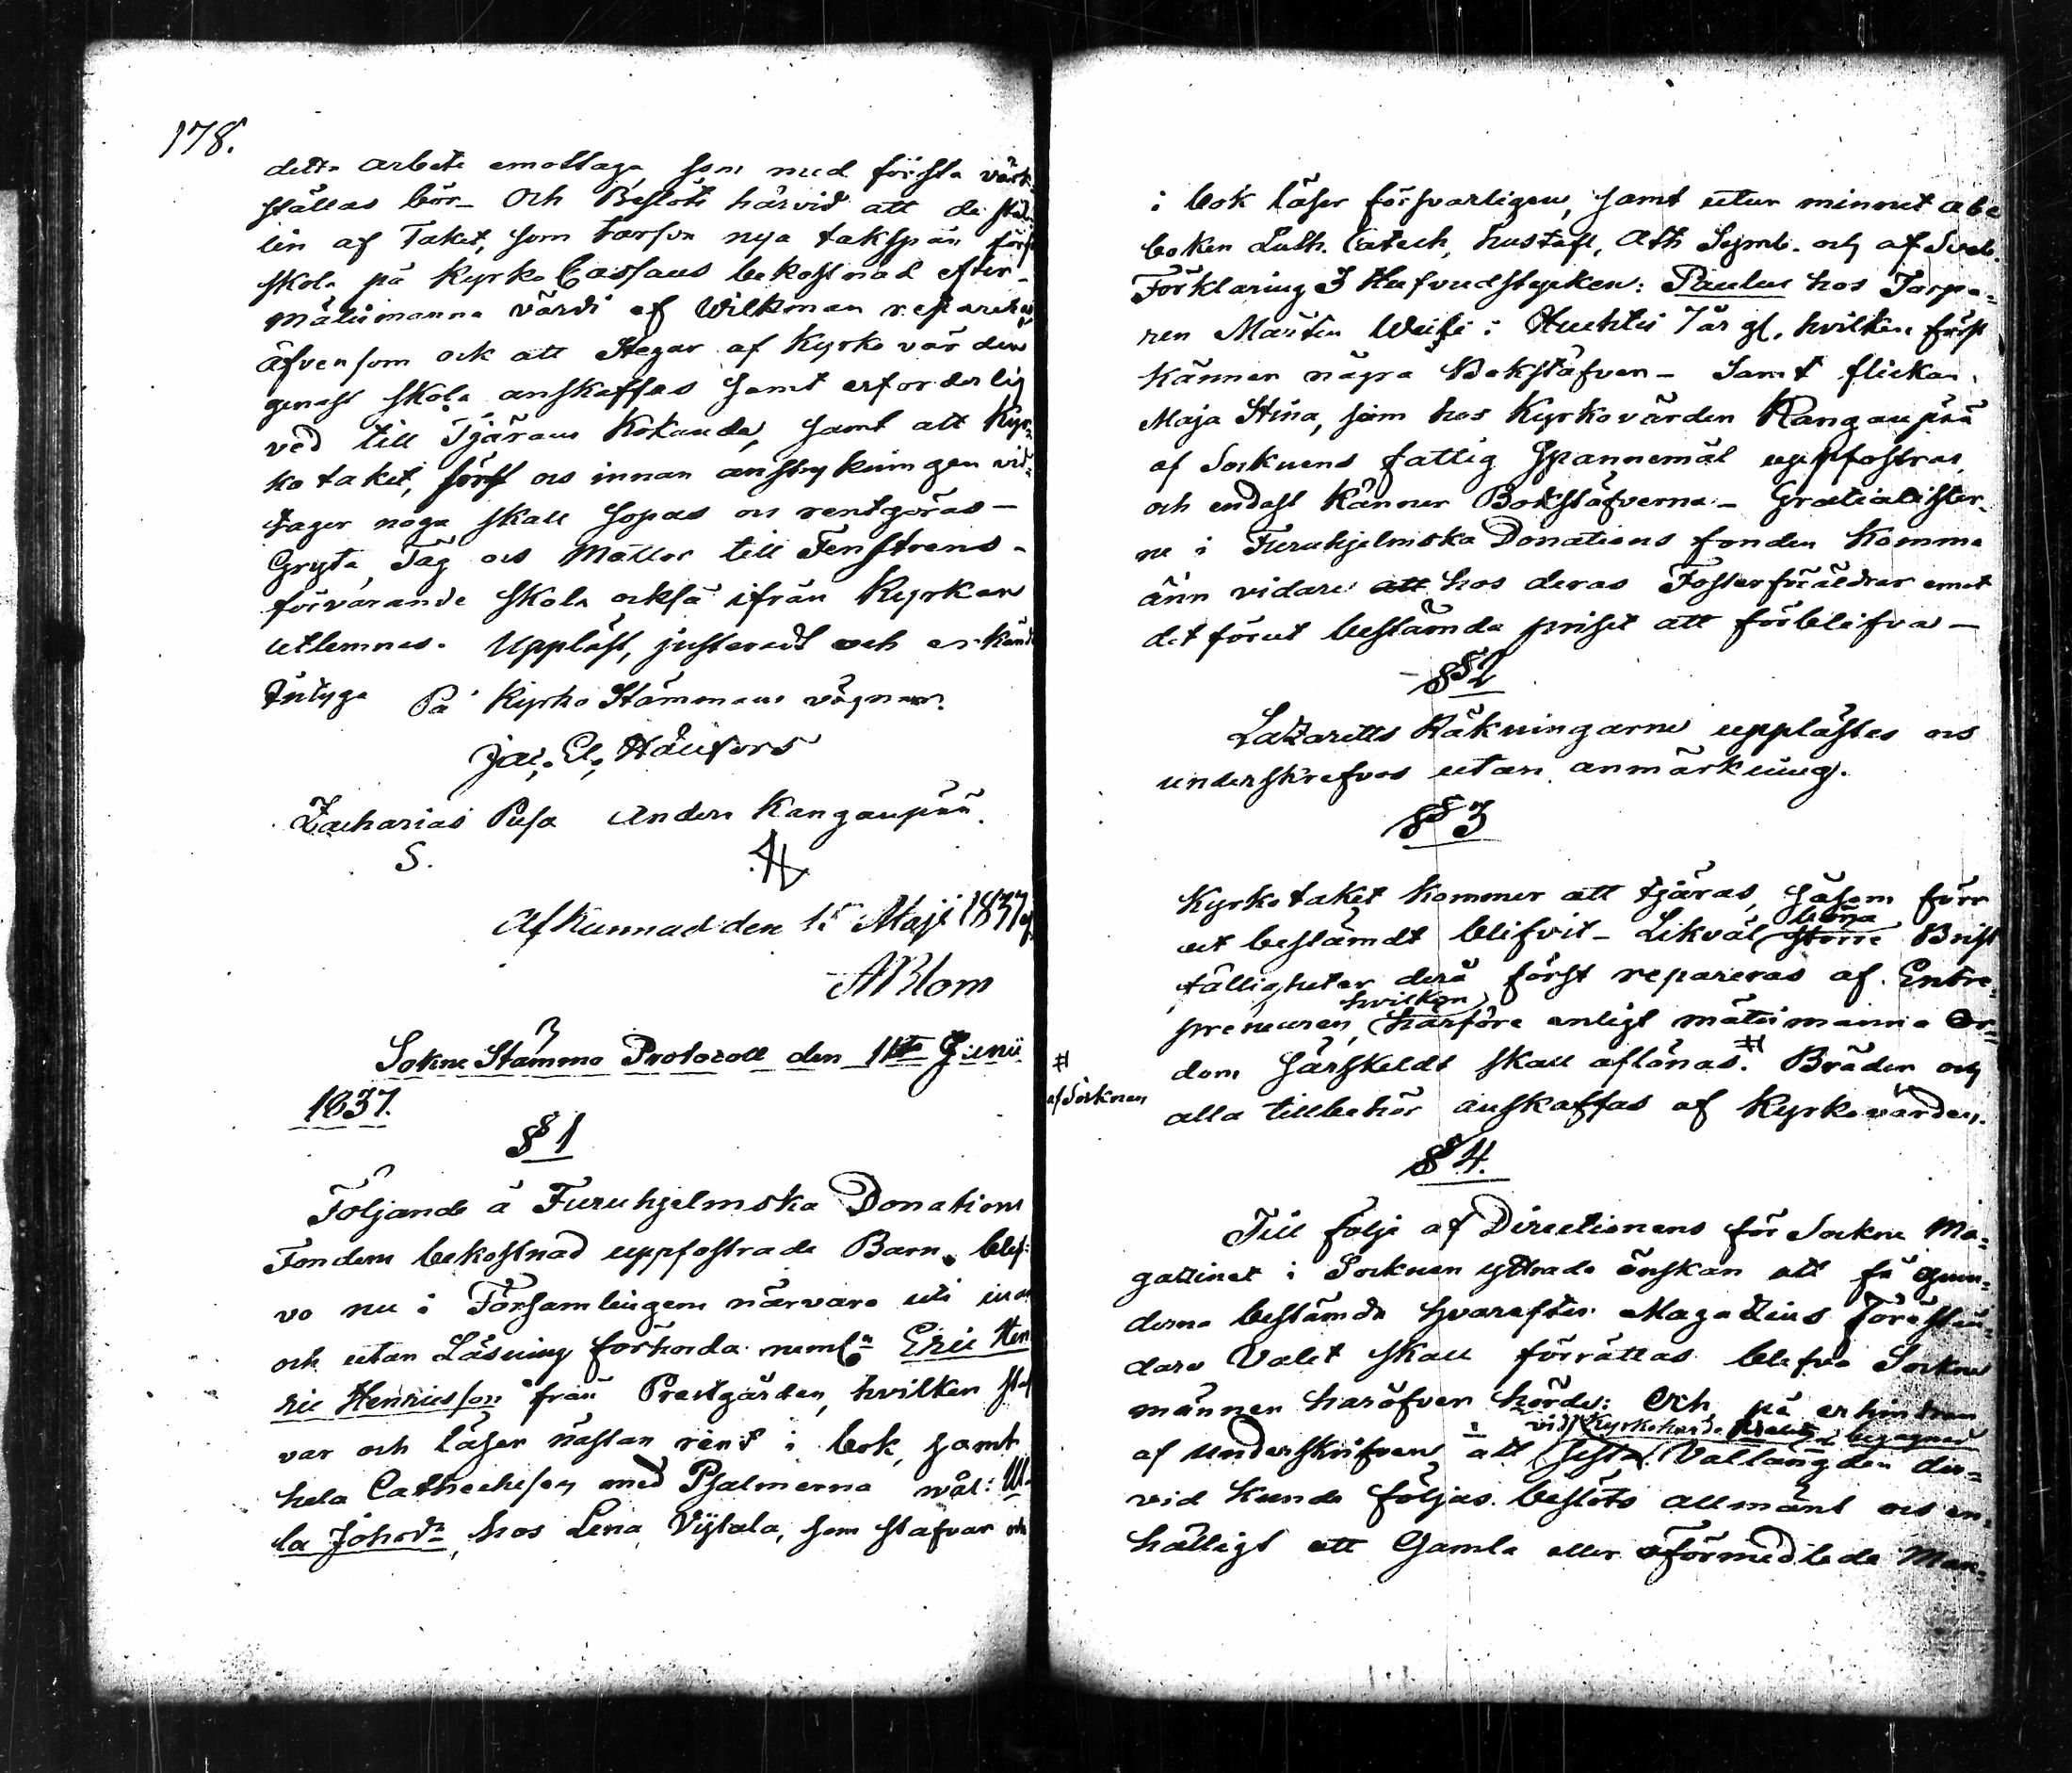 178.
detta arbete emottaga, som med första värk-
ställas bör. Och Beslöts härvid att de stäl-
len af Taket, som tarfva nya takspån först
skola på Kyrko Cassans bekostnad efter
mätismanna värdi af Wilkman repareras
äfvensom ock att Stegar af Kyrko värden
genast skola anskaffas samt erforderlig
ved till Tjärans kokande, samt att Kyr-
ko taket, först och innan anstrykningen vid-
tager noga skall sopas och rentgöras –
Gryta, Tåg och Mattor till Fenstrens
förvarande skola också ifrån Kyrkan
utlemnas. Uppläst, justeradt och erkändt
intyga På Kyrko Stämmans vägnar.
Jac. El. Hänfors
Zacharias Pusa Anders Kangaspää
S.
Afkunnad den 15 Maji 1837 af
A Blom
Sokne Stämmo Protocoll den 11te Junii
1837.
§ 1
Följande å Furuhjelmska Donations
Fondens bekostnad uppfostrade Barn blef-
vo nu i Församlingens närvaro uti innan
och utan Läsning förhörda neml:n Eric Hen
ric Henricsson från Prestgården, hvilken staf
var och läser nästan rent i bok, samt
hela Cathechesen med Psalmerna wäl: Ul
la Johsdr, hos Lena Vijtala, som stafvar och
i bok läser försvarligen, samt utur minnet abc
boken Luth. Catech, hustafl, Ath Symb. och af Sveb.
Förklaring 3 Hufvudstycken: Paulus hos Torpa-
ren Martin i Huchtis 7 år gl. hvilken först
känner några Bokstäfver – Samt flickan
Maja Stina, som hos Kyrkovärden Kangaspää
af Socknens fattig Spannemål uppfostras
och endast känner Bokstäfverna – Gratialister-
ne i Furuhjelmska Donations fonden komma
änn vidare att hos deras Fosterföräldrar emot
det förut bestämda priset att förblifva –
§ 2
Lazaretts Räkningarne upplästes och
underskrefvos utan anmärkning.
§ 3
Kyrkotaket kommer att tjäras, såsom förr
ut bestämdt blifvit – Likväl böra större Brist
fälligheter derå först repareras af Entre-
preneuren, hvilken härföre enligt mätismanna or-
dom särskildt skall aflönas. # Bräder och
# af Socknen
alla tillbehör anskaffas af Kyrkovärden.
§ 4.
Till följe af Directionens för Sockne Ma-
gazinet i Socknen yttrade önskan att få grun-
derna bestämda hvarefter Magazins Förestån-
dare Valet skall förrättas blefvo Sockne
männen häröfver hörde: Och på erhindran
af Underskrifven att vid Kyrkoherde begagnad
sista Vallängden der-
vid kunde följas. beslöts allmänt och en-
hälligt att Gamla eller oförmedlade Man-